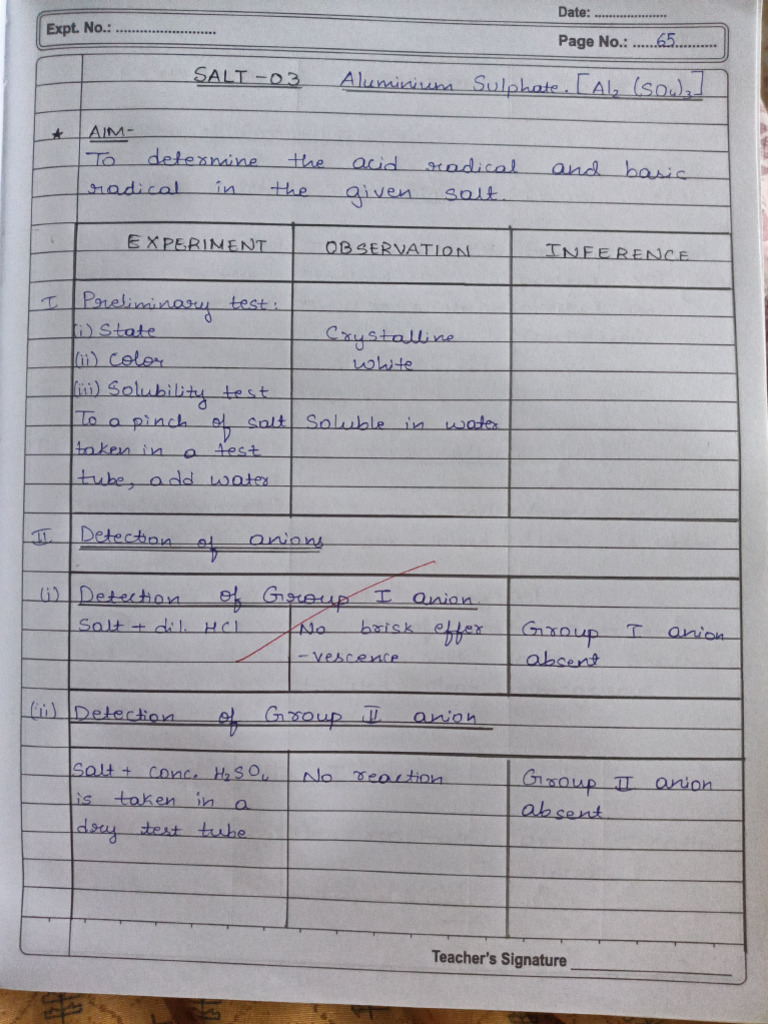 Date: ....................
Expt. No.: ............................
Page No.: ......65...........
SALT-03 Aluminium Sulphate. [Al₂ (SO₄)₃]
* AIM-
To determine the acid radical and basic
radical in the given salt.
EXPERIMENT OBSERVATION INFERENCE
I Preliminary test:
(i) State Crystalline
(ii) Color White
(iii) Solubility test
To a pinch of salt Soluble in water
taken in a test
tube, add water
II Detection of anions
(i) Detection of Group I anion
Salt + dil. HCl No brisk effer Group I anion
-vescence absent
(ii) Detection of Group II anion
Salt + conc. H₂SO₄ No reaction Group II anion
is taken in a absent
dry test tube
Teacher's Signature